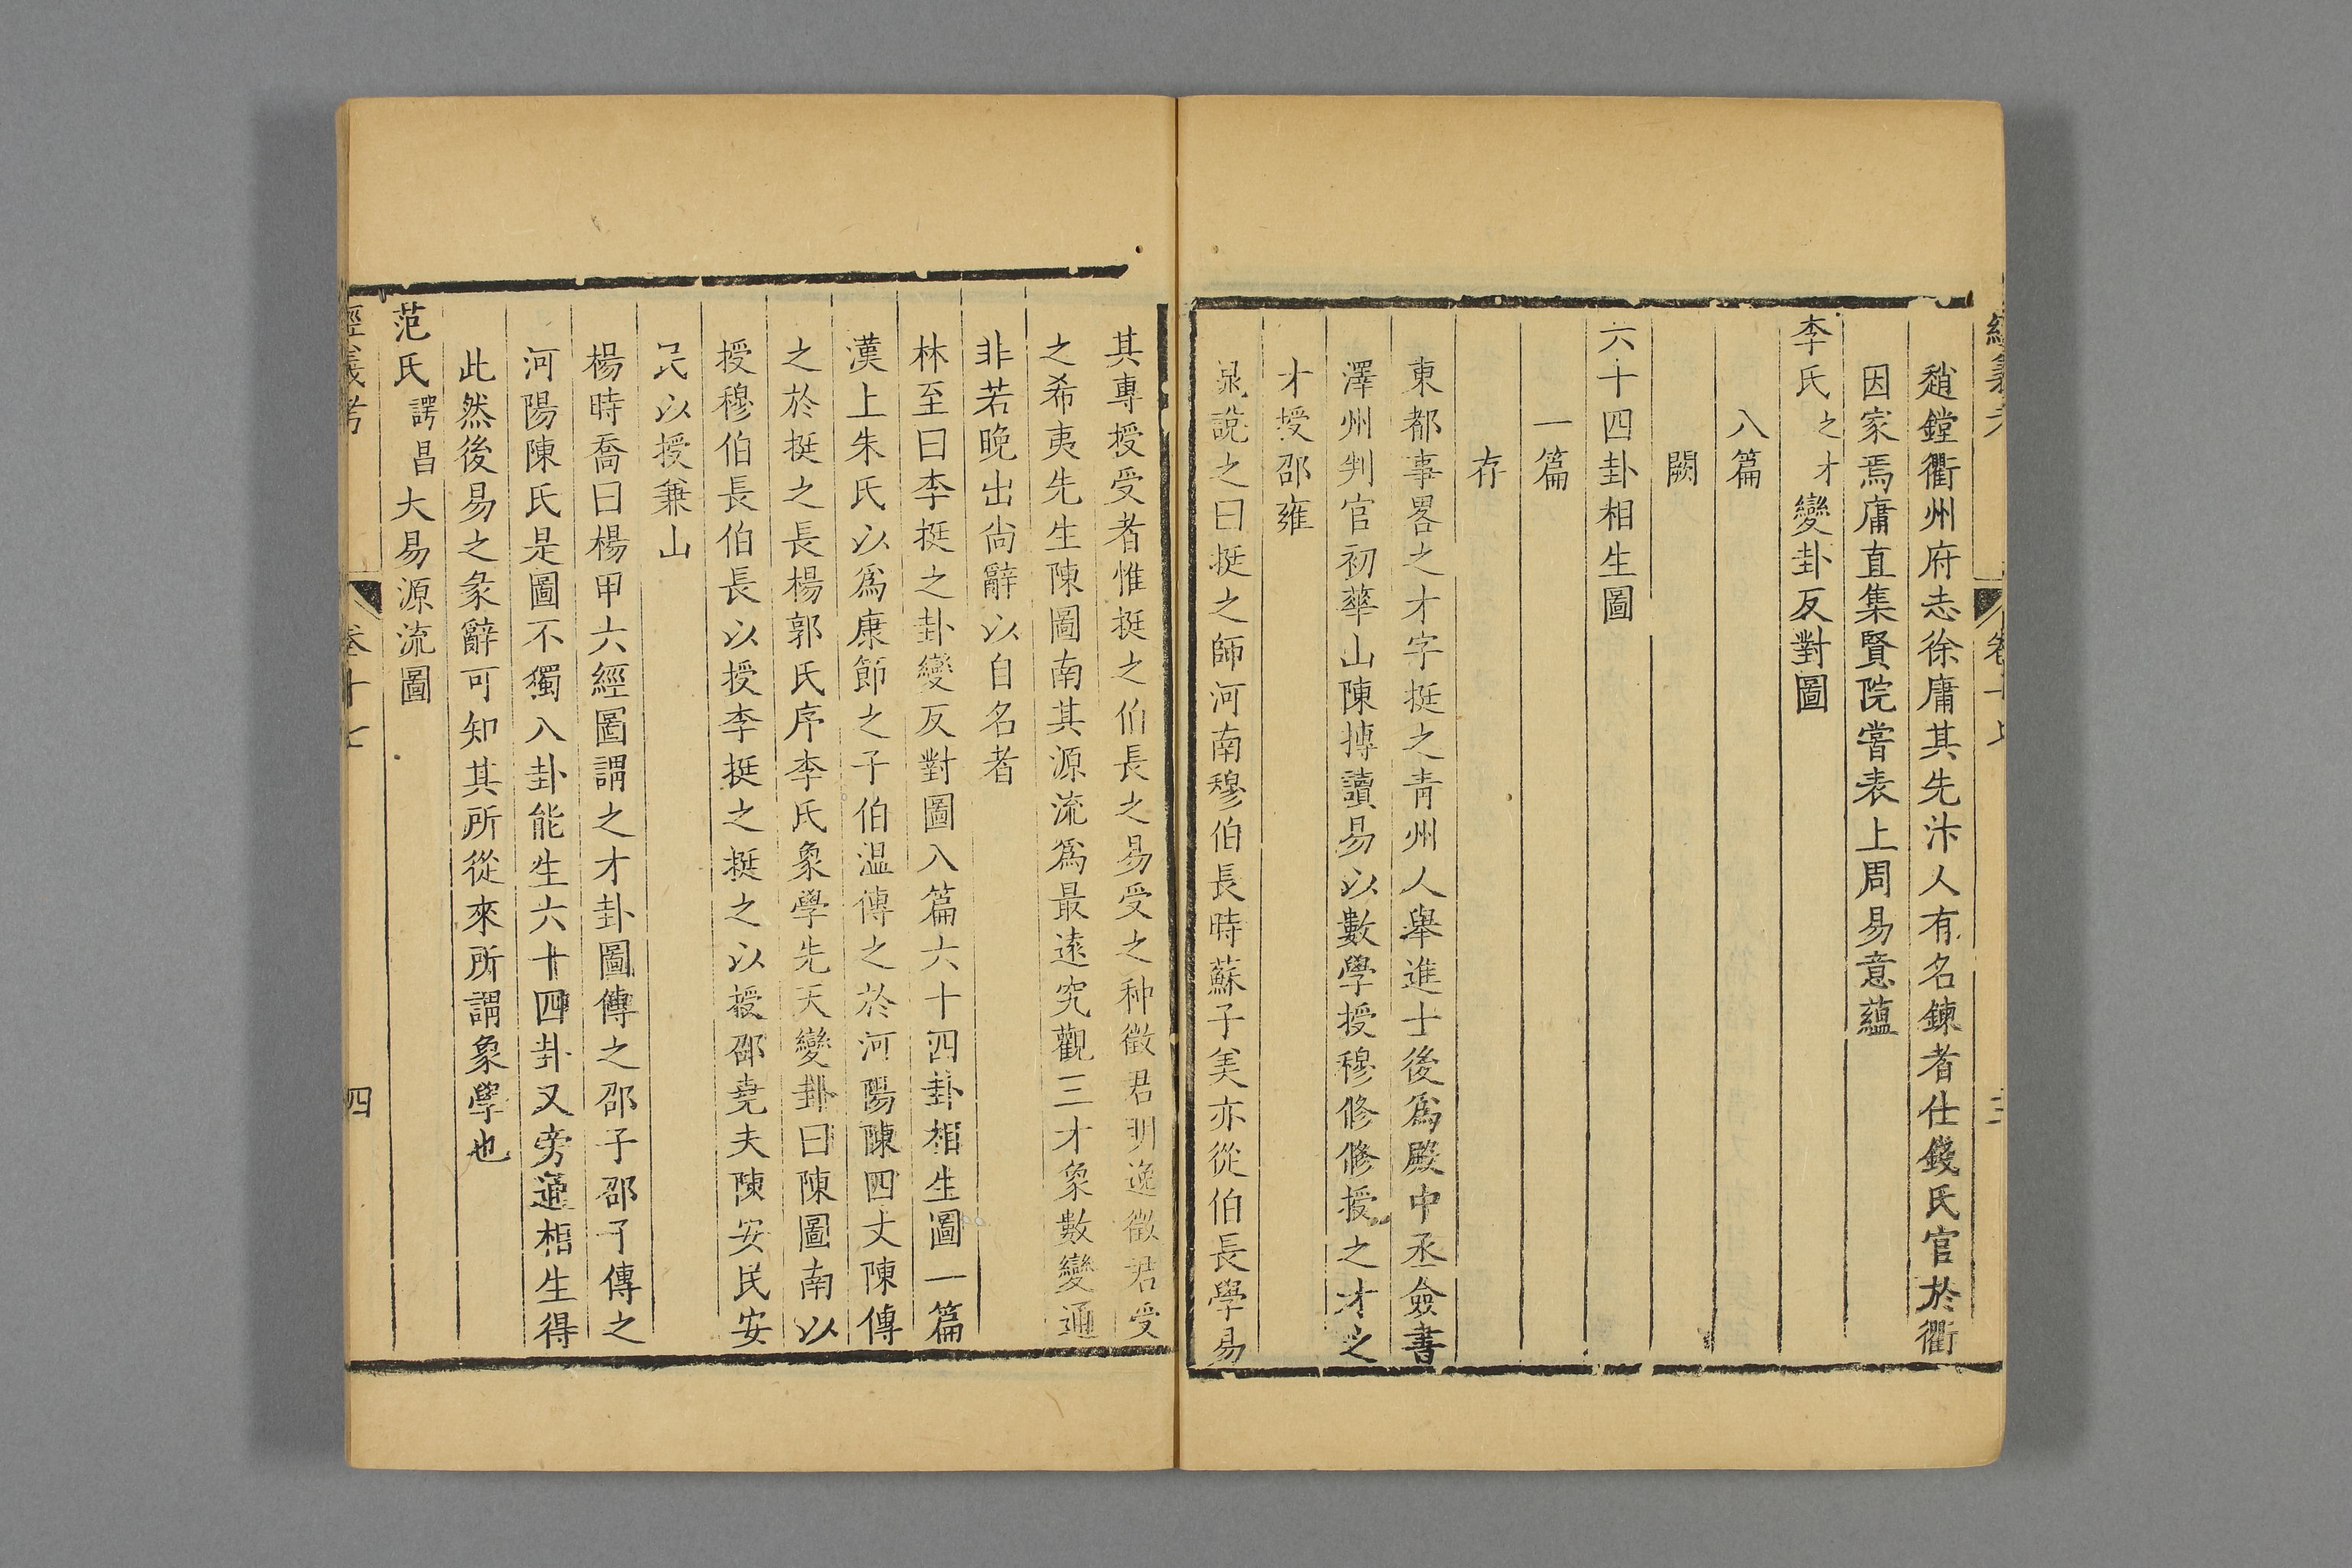 趙鏜衢州府志徐庸其先汴人有名鍊者仕錢氏官於衢
因家焉庸直集賢院嘗表上周易意蘊
李氏之才變卦反對圖
八篇
闕
六十四卦相生圖
一篇
存
東都事畧之才字挺之靑州人舉進士後爲殿中丞僉書
澤州判官初華山陳摶讀易以數學授穆修修授之才之
才授邵雍
晁說之曰挺之師河南穆伯長時蘇子美亦從伯長學易
其專授受者惟挺之伯長之易受之种徵君明逸徵君受
之希夷先生陳圖南其源流爲最遠究觀三才象數變通
非若晚出尙辭以自名者
林至曰李挺之卦變反對圖八篇六十四卦相生圖一篇
漢上朱氏以爲康節之子伯温傳之於河陽陳四丈陳傳
之於挺之長楊郭氏序李氏象學先天變卦曰陳圖南以
授穆伯長伯長以授李挺之挺之以授邵堯夫陳安民安
民以授兼山
楊時喬曰楊甲六經圖謂之才卦圖傳之邵子邵子傳之
河陽陳氏是圖不獨八卦能生六十四卦又旁通相生得
此然後易之彖辭可知其所從來所謂象學也
范氏諤昌大易源流圖
經義考 卷十七 四